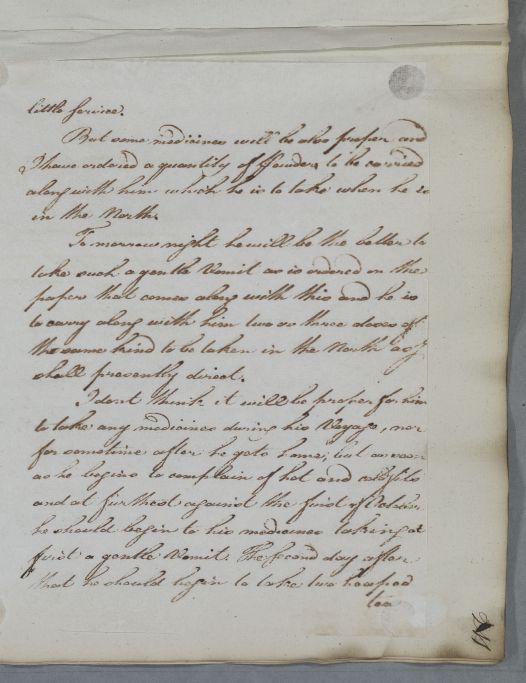 little service.
But some medicines will be also proper and
I have ordered a quantity of Powders to be carried
along with him which he is to take when he is
in the North.
To morrow night he will be the better to
take such a gentle Vomit as is ordered on the
paper that comes along with this and he is
to carry along with him two or three doses of
the same kind to be taken in the North as I
shall presently direct.
I dont think it will be proper for him
to take any medicines during his Voyage, nor
for sometime after he gets home, but as soon
as he begins to complain of hot and cold fits
and at furthest against the first of October
he should begin to his medicines taking at
first a gentle Vomit. The Second day after
that he should begin to take two heaped
tea